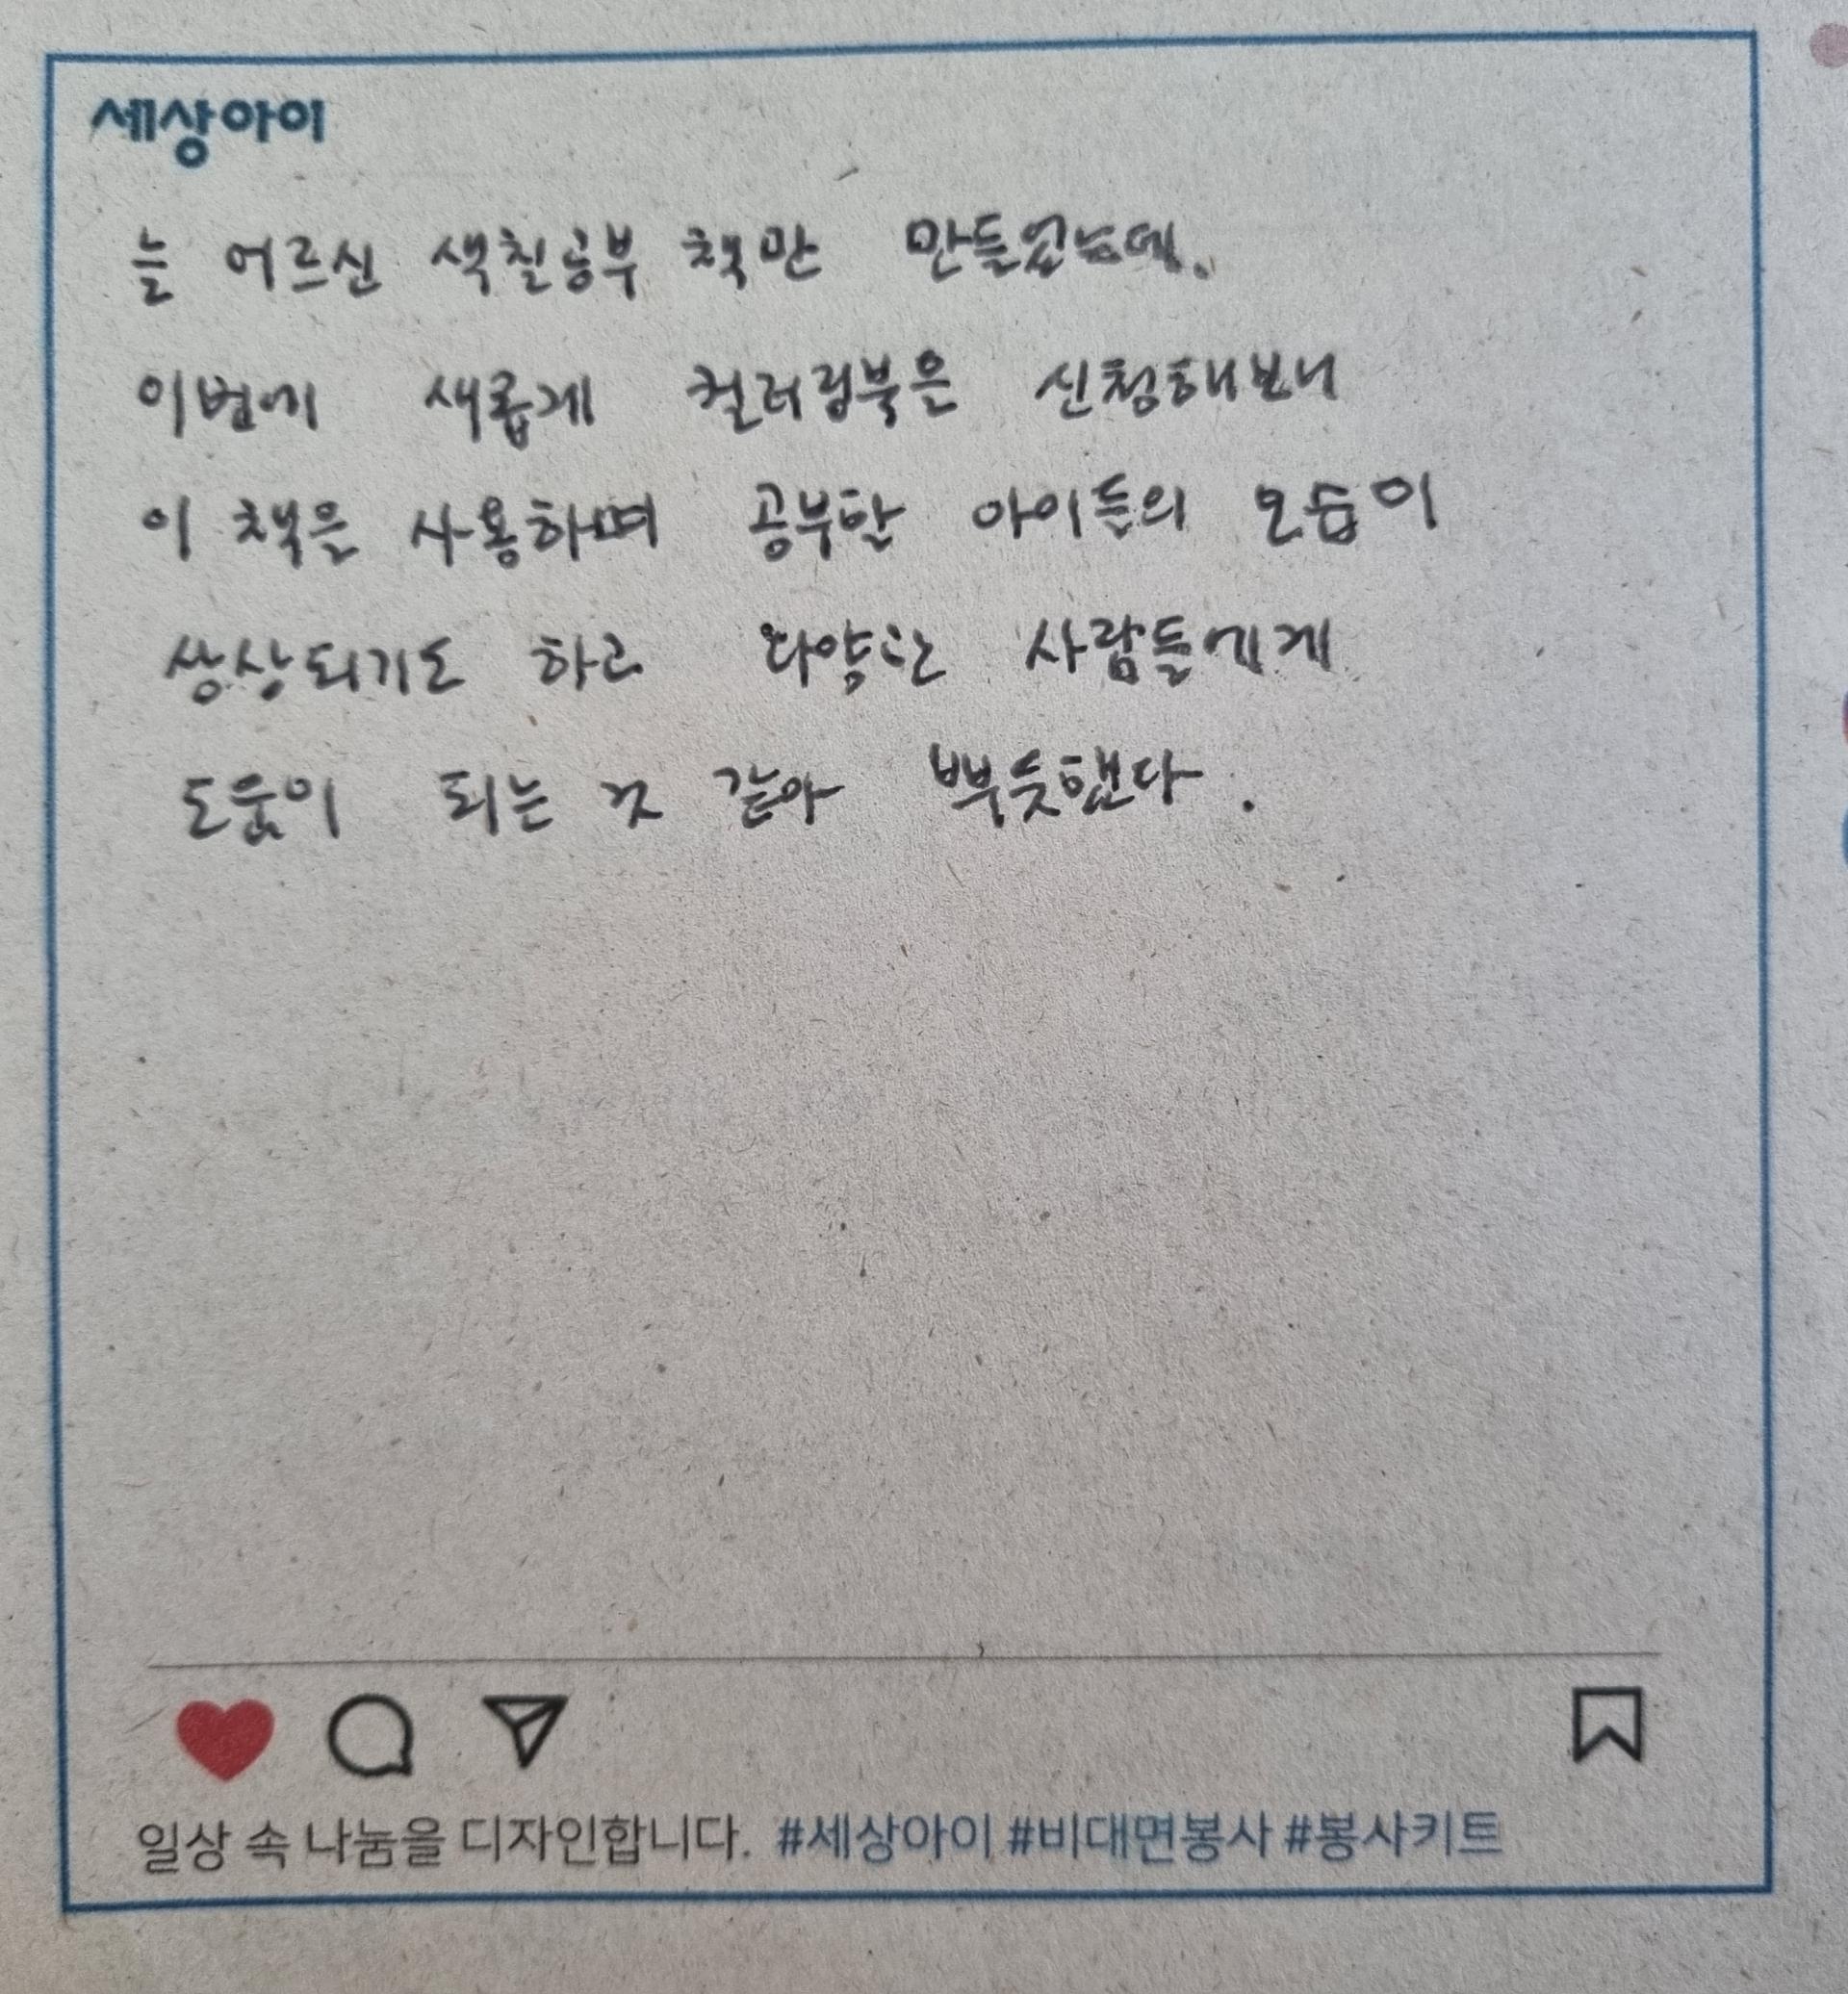 세상아이
늘 어르신 색칠공부 책만 만들었는데.
이번에 새롭게 컬러링북은 신청해보니
이 책을 사용하며 공부할 아이들의 모습이
상상되기도 하고 다양한 사람들에게
도움이 되는 것 같아 뿌듯했다.
일상 속 나눔을 디자인합니다. #세상아이 #비대면봉사 #봉사키트